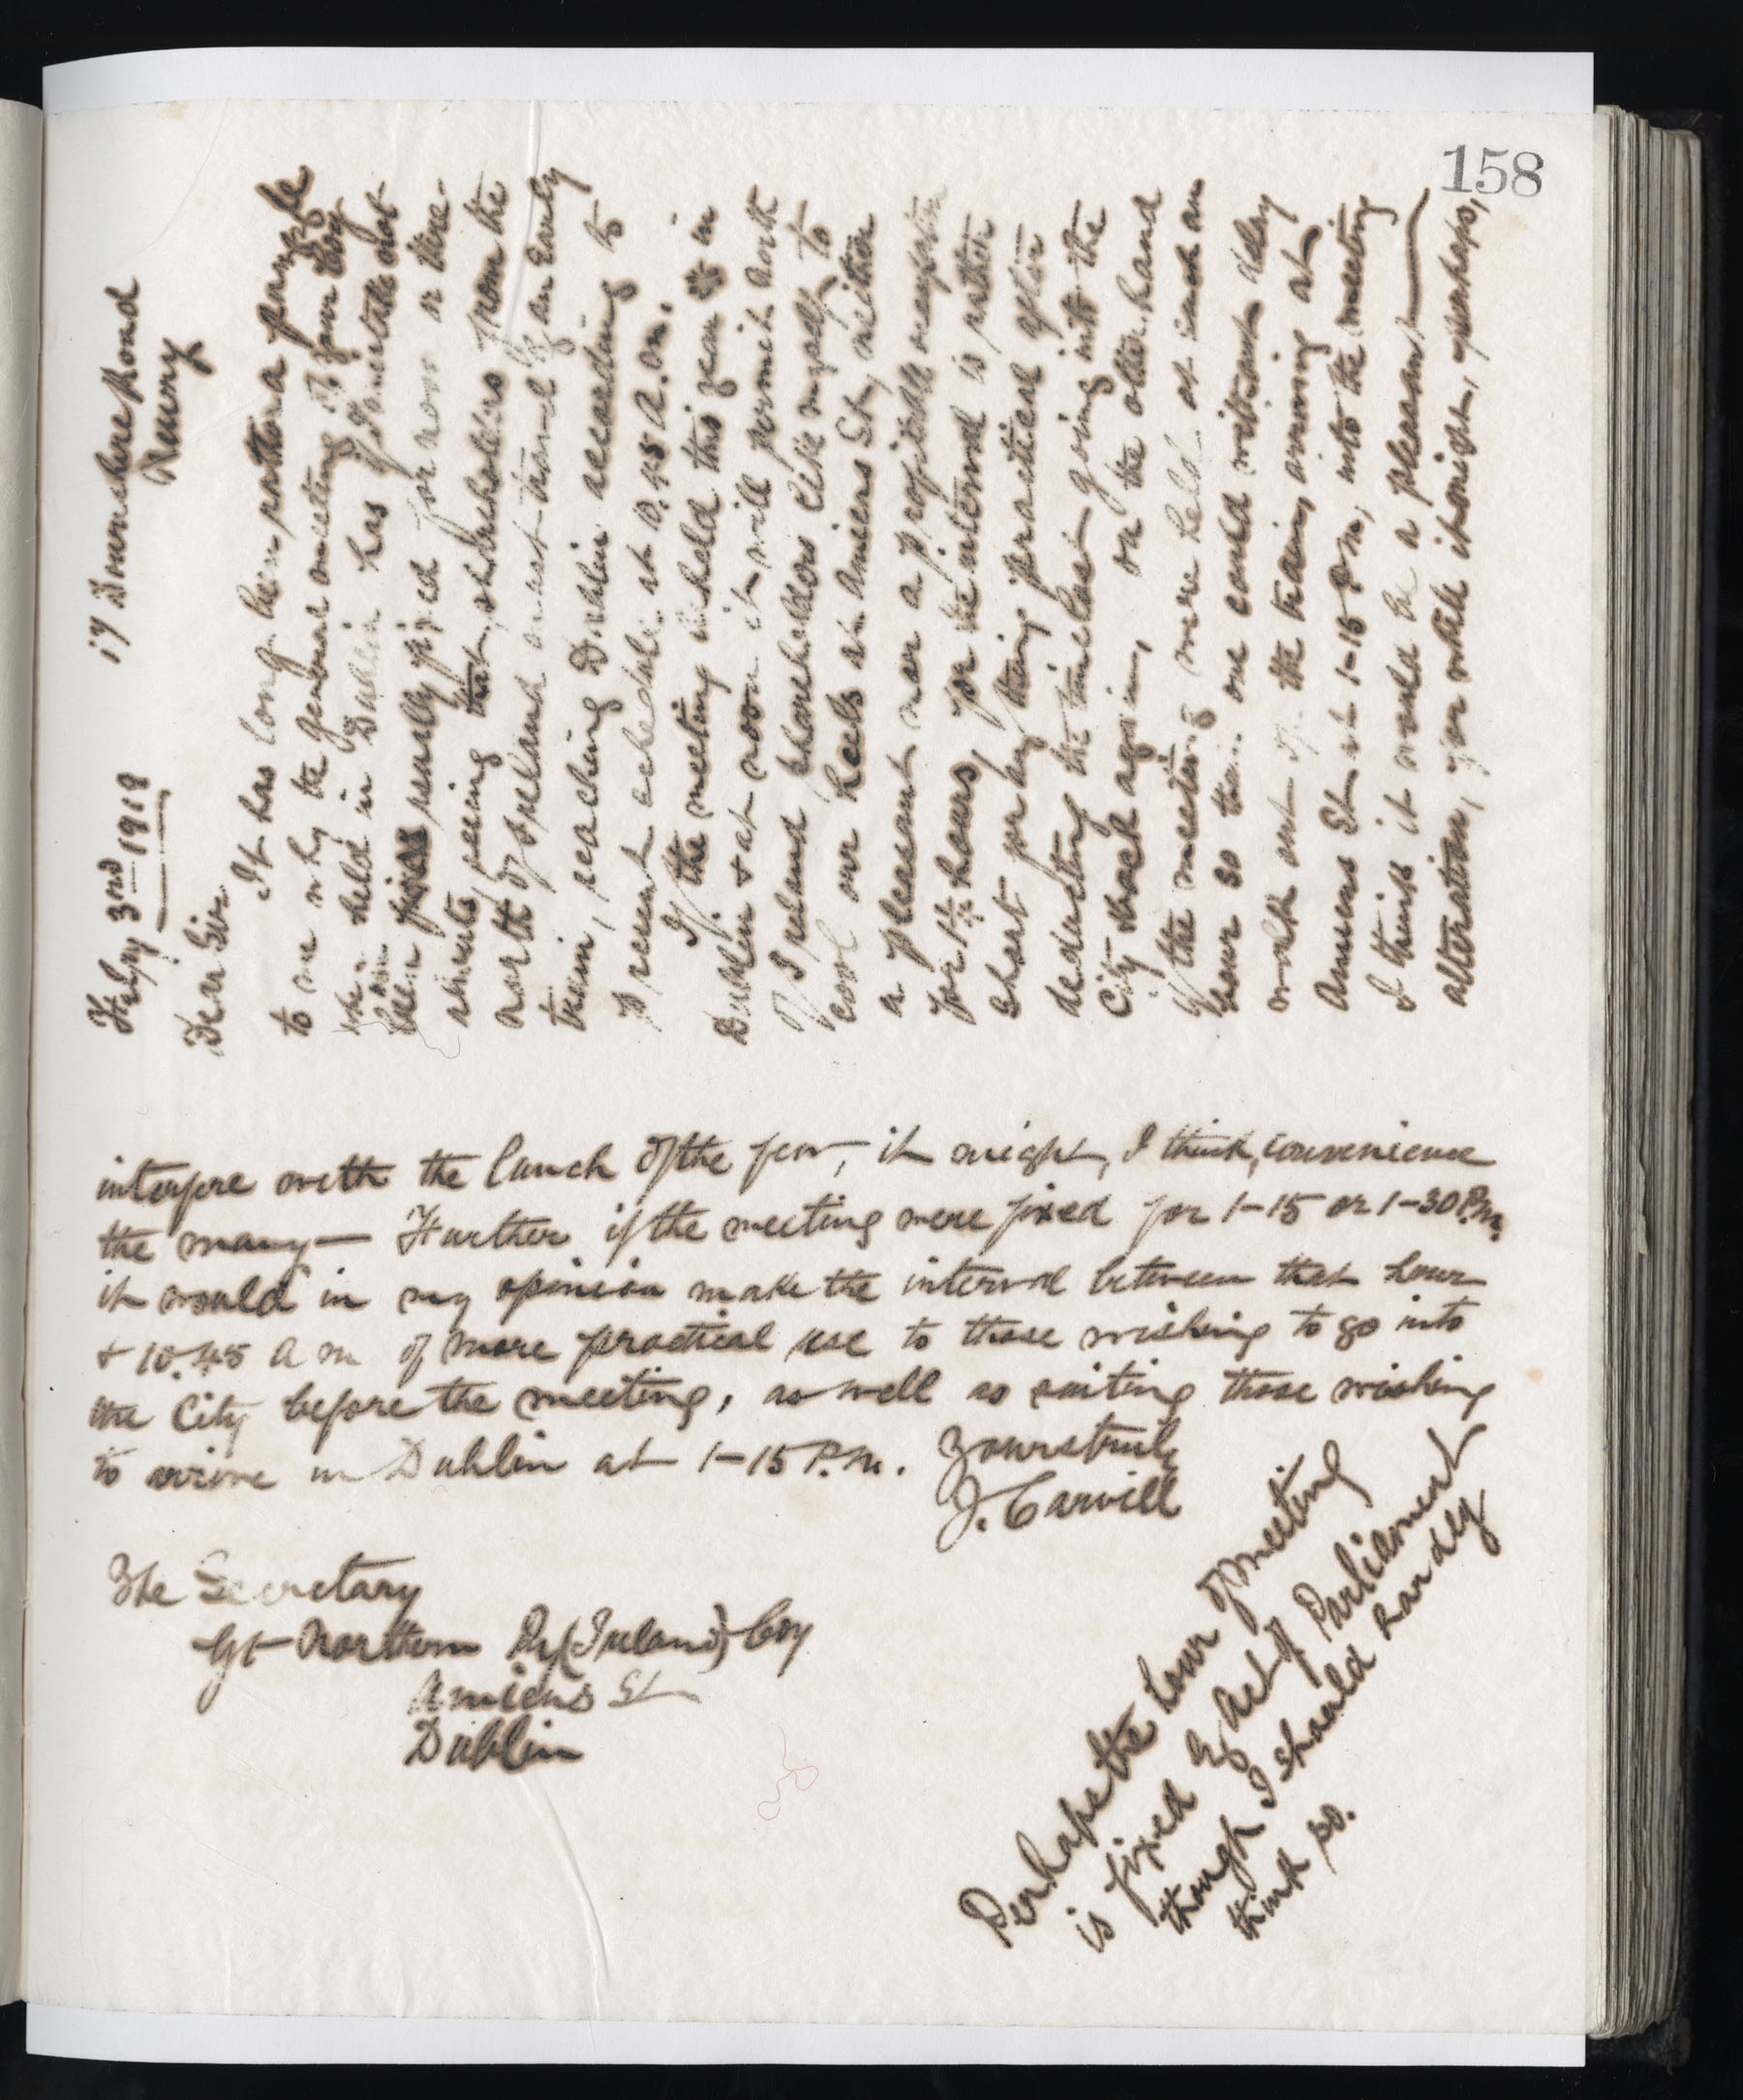 158
17 Downshire Road
Newry
Feby 3rd 1918
Dear Sir
It has long been rather a puzzle
to me why the general meeting of your Coy
when held in Dublin has sometimes not
been usually fixed for noon or there-
abouts seeing that shareholders from the
north of Ireland must travel by an early
train, reaching Dublin according to
present schedule at 10.45 A.M.
If the meeting is held this year in
Dublin & at noon it will permit north
of Ireland shareholders like myself to
cool our heels at Amiens St, neither
a pleasant nor a profitable occupation
for 1¼ hours for the interval is rather
short for anything practical after
deducting the time lost going into the
City & back again, on the other hand
if the meeting were held at such an
hour so that one could without delay
walk out of the train, arriving at
Amiens St at 1-15 P m, into the meeting
I think it would be a pleasant
alteration, for while it might, perhaps,
interfere with the lunch of the few, it might, I think, convenience
the many — Further if the meeting were fixed for 1-15 or 1-30 P.m.
it would in my opinion make the interval between that hour
& 10.45 A m of more practical use to those wishing to go into
the City before the meeting, as well as suiting those wishing
to arrive in Dublin at 1-15 P.M. Yours truly
J. Carvill
The Secretary
Gt Northern Ry (Ireland) Coy
Amiens St
Dublin
Perhaps the hour of meeting
is fixed by Act of Parliament
though I should hardly
think so.